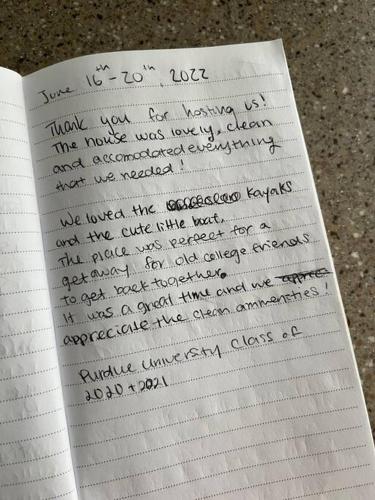 June 16th-20th, 2022
Thank you for hosting us!
The house was lovely, clean
and accomodated everything
that we needed!
We loved the kayaks
and the cute little boat.
The place was perfect for a
get away for old college friends
to get back together.
It was a great time and we
appreciate the clean ammenities!
Purdue University Class of
2020 + 2021